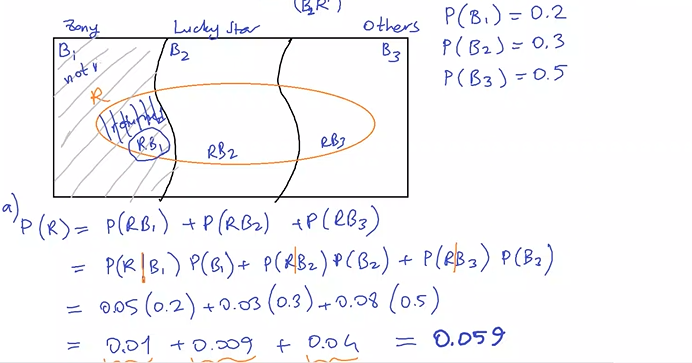 (B₂R')
Zony Lucky Star Others
B₁ B₂ B₃
not r
R
returned
RB₁ RB₂ RB₃
P(B₁) = 0.2
P(B₂) = 0.3
P(B₃) = 0.5
a) P(R) = P(RB₁) + P(RB₂) + P(RB₃)
= P(R|B₁) P(B₁) + P(R|B₂) P(B₂) + P(R|B₃) P(B₃)
= 0.05 (0.2) + 0.03 (0.3) + 0.08 (0.5)
= 0.01 + 0.009 + 0.04 = 0.059